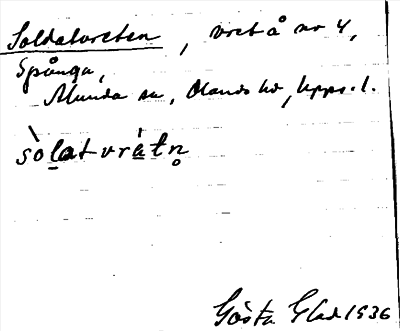 Soldatvreten, vret å nr 4,
Spånga,
Munda sn, Olands hd, Upps. l.
sòlatvrátn̥
Gösta Glad 1936